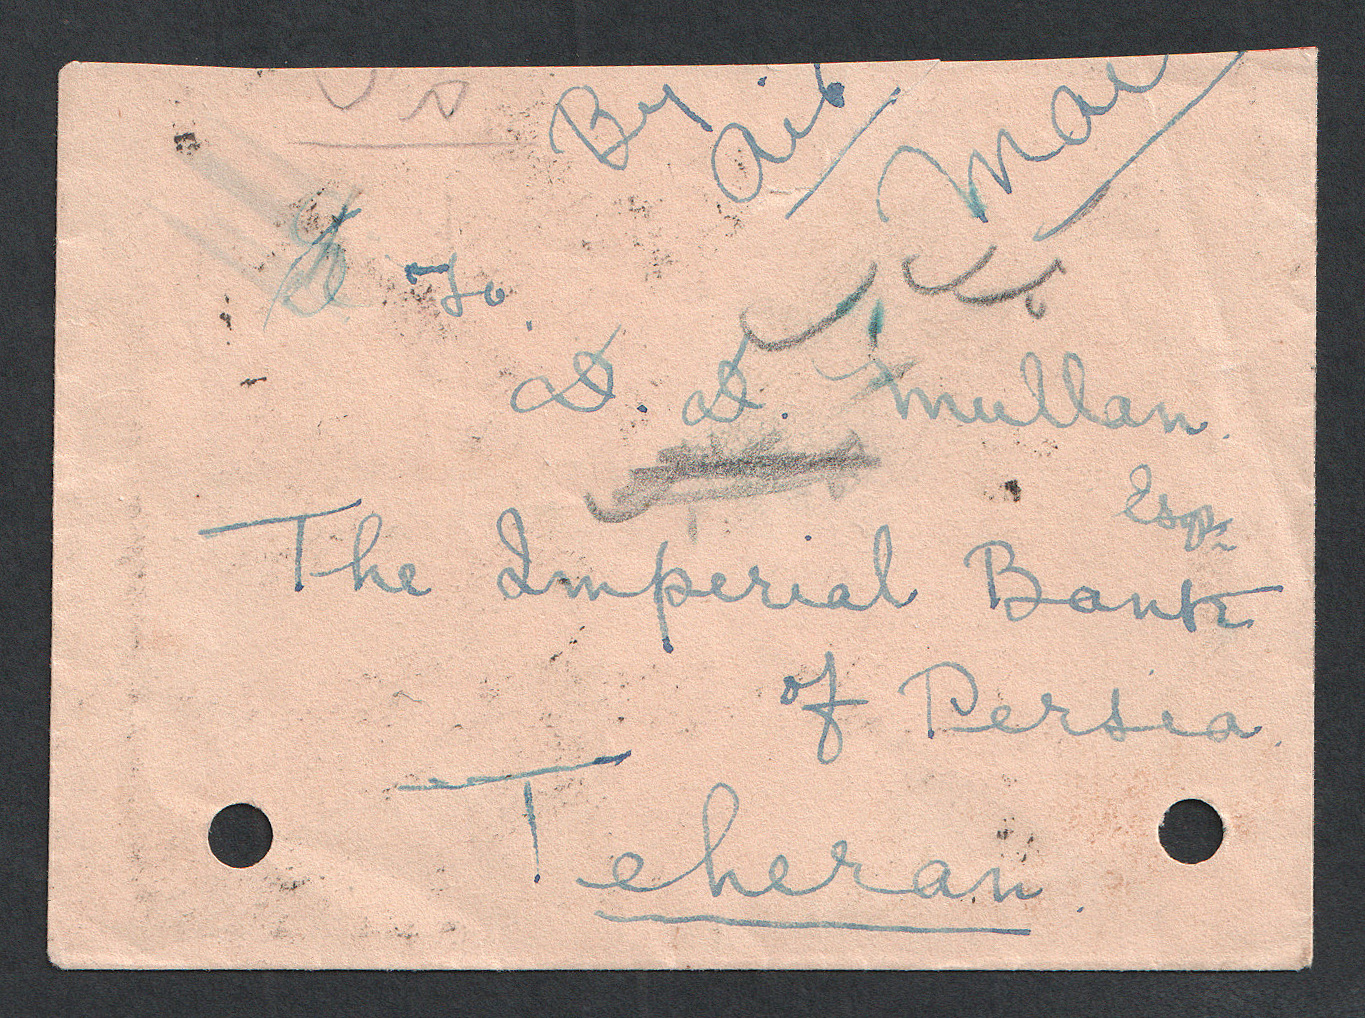 By air mail
To,
D. D. Mullan.
Esqr.
The Imperial Bank
of Persia.
Teheran.